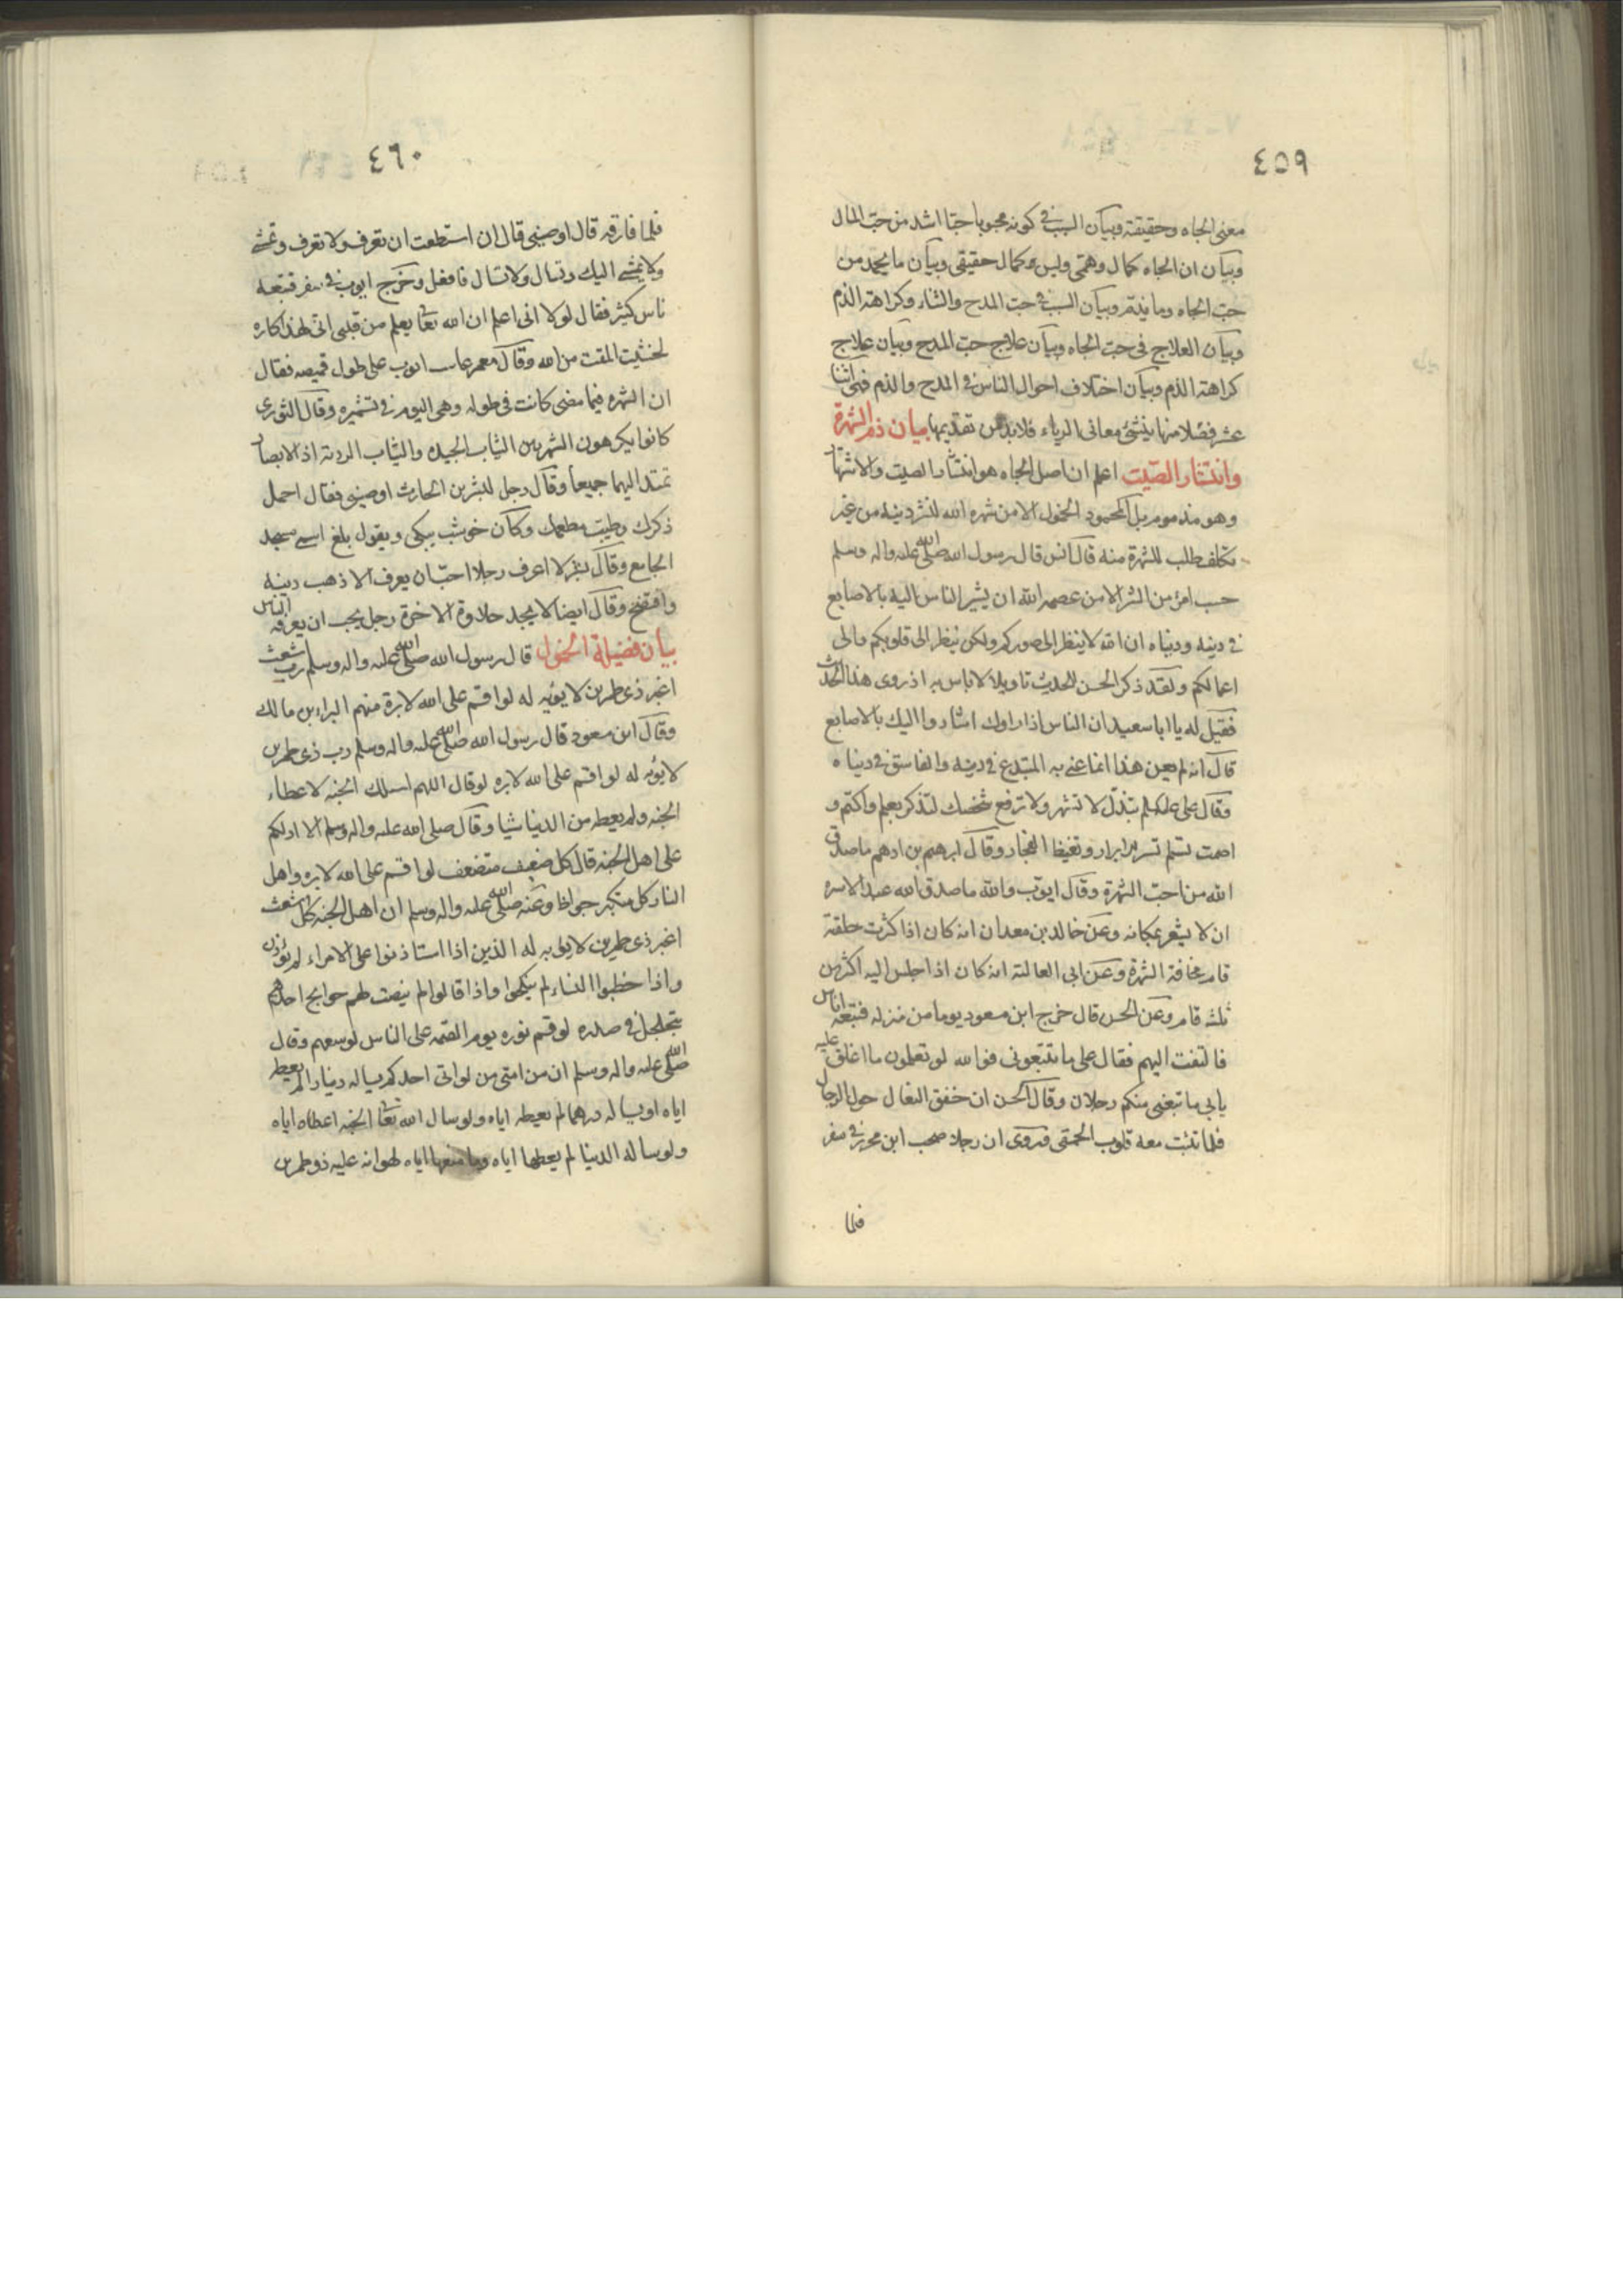 ٤٥٩
معنى الجاه وحقيقته وبيان السبب في كونه محبوبا حبا اشد من حب المال
وبيان ان الجاه كمال وهمى وليس بكمال حقيقى وبيان ما يحمد من
حب الجاه وما يذم وبيان السبب في حب المدح والثناء وكراهة الذم
وبيان العلاج فى حب الجاه وبيان علاج حب المدح وبيان علاج
كراهة الذم وبيان اختلاف احوال الناس في المدح والذم فهى اثنا
عشر فصلا منها ينشئ معانى الرياء فلابد من تقديمها بيان ذم الشهرة
وانتشار الصيت اعلم ان اصل الجاه هو انتشار الصيت والاشتهار
وهو مذموم بل المحمود الخمول الا من شهره الله لنشر دينه من غير
تكلف طلب للشهرة منه قال انس قال رسول الله صلى الله عليه واله وسلم
حسب امرئ من الشر الا من عصمه الله ان يشير الناس اليه بالاصابع
في دينه ودنياه ان الله لا ينظر الى صوركم ولكن ينظر الى قلوبكم والى
اعمالكم ولقد ذكر الحسن للحديث تاويلا لا باس به اذ روى هذا الحديث
فقيل له يا ابا سعيد ان الناس اذا راوك اشاروا اليك بالاصابع
قال انه لم يعن هذا انما عنى به المبتدع في دينه والفاسق في دنياه
وقال على عليه السلم تبذل لا تشتهر ولا ترفع شخصك لتذكر بعلم واكتم و
اصمت تسلم تسر الابرار وتغيظ الفجار وقال ابرهيم بن ادهم ما صدق
الله من احب الشهرة وقال ايوب والله ما صدق الله عبد الا سره
ان لا يشعر بمكانه وعن خالد بن معدان انه كان اذا كثرت حلقته
قام مخافة الشهرة وعن ابى العالية انه كان اذا جلس اليه اكثر من
ثلثه قام وعن الحسن قال خرج ابن مسعود يوما من منزله فتبعه اناس
فالتفت اليهم فقال على ما تتبعونى فوالله لو تعلمون ما اغلق عليه
بابى ما تبعنى منكم رجلان وقال الحسن ان خفق النعال حول الرجال
فلما تثبت معه قلوب الحمقى وروى ان رجلا صحب ابن محيريز في سفر
فلما
٤٦٠
فلما فارقه قال اوصنى قال ان استطعت ان تعرف ولا تعرف وتمشى
ولا يمشى اليك وتسال ولا تسال فافعل وخرج ايوب في سفر فتبعه
ناس كثير فقال لولا انى اعلم ان الله تعا يعلم من قلبى انى لهذا كاره
لخشيت المقت من الله وقال معمر عاتبت ايوب على طول قميصه فقال
ان الشهره فيما مضى كانت فى طوله وهى اليوم في تشميره وقال الثورى
كانوا يكرهون الشهرتين الثياب الجيده والثياب الرديه اذ الابصار
تمتد اليهما جميعا وقال رجل لبشر بن الحارث اوصينى فقال اخمل
ذكرك وطيب مطعمك وكان حوشب يبكى ويقول بلغ اسمى مسجد
الجامع وقال بشر لا اعرف رجلا احب ان يعرف الا ذهب دينه
وافتضح وقال ايضا لا يجد حلاوة الاخرة رجل يحب ان يعرفه الناس
بيان فضيلة الخمول قال رسول الله صلى الله عليه واله وسلم رب اشعث
اغبر ذى طمرين لا يؤبه له لو اقسم على الله لابره منهم البراء بن مالك
وقال ابن مسعود قال رسول الله صلى الله عليه واله وسلم رب ذى طمرين
لا يؤبه له لو اقسم على الله لابره لو قال اللهم اسئلك الجنه لاعطاه
الجنه ولم يعطه من الدنيا شيا وقال صلى الله عليه واله وسلم الا ادلكم
على اهل الجنه قال كل ضعيف متضعف لو اقسم على الله لابره واهل
النار كل متكبر جواظ وعنه صلى الله عليه واله وسلم ان اهل الجنه كل اشعث
اغبر ذى طمرين لا يوبه له الذين اذا استاذنوا على الامراء لم يؤذن
واذا خطبوا النساء لم ينكحوا واذا قالوا لم ينصت لهم حوايج احدهم
يتجلجل في صدره لو قسم نوره يوم القيمه على الناس لوسعهم وقال
صلى الله عليه واله وسلم ان من امتى من لو اتى احدكم يساله دينارا لم يعطه
اياه او يساله درهما لم يعطه اياه ولو سال الله تعا الجنه اعطاه اياه
ولو ساله الدنيا لم يعطها اياه وما منعها اياه لهوانه عليه ذو طمرين